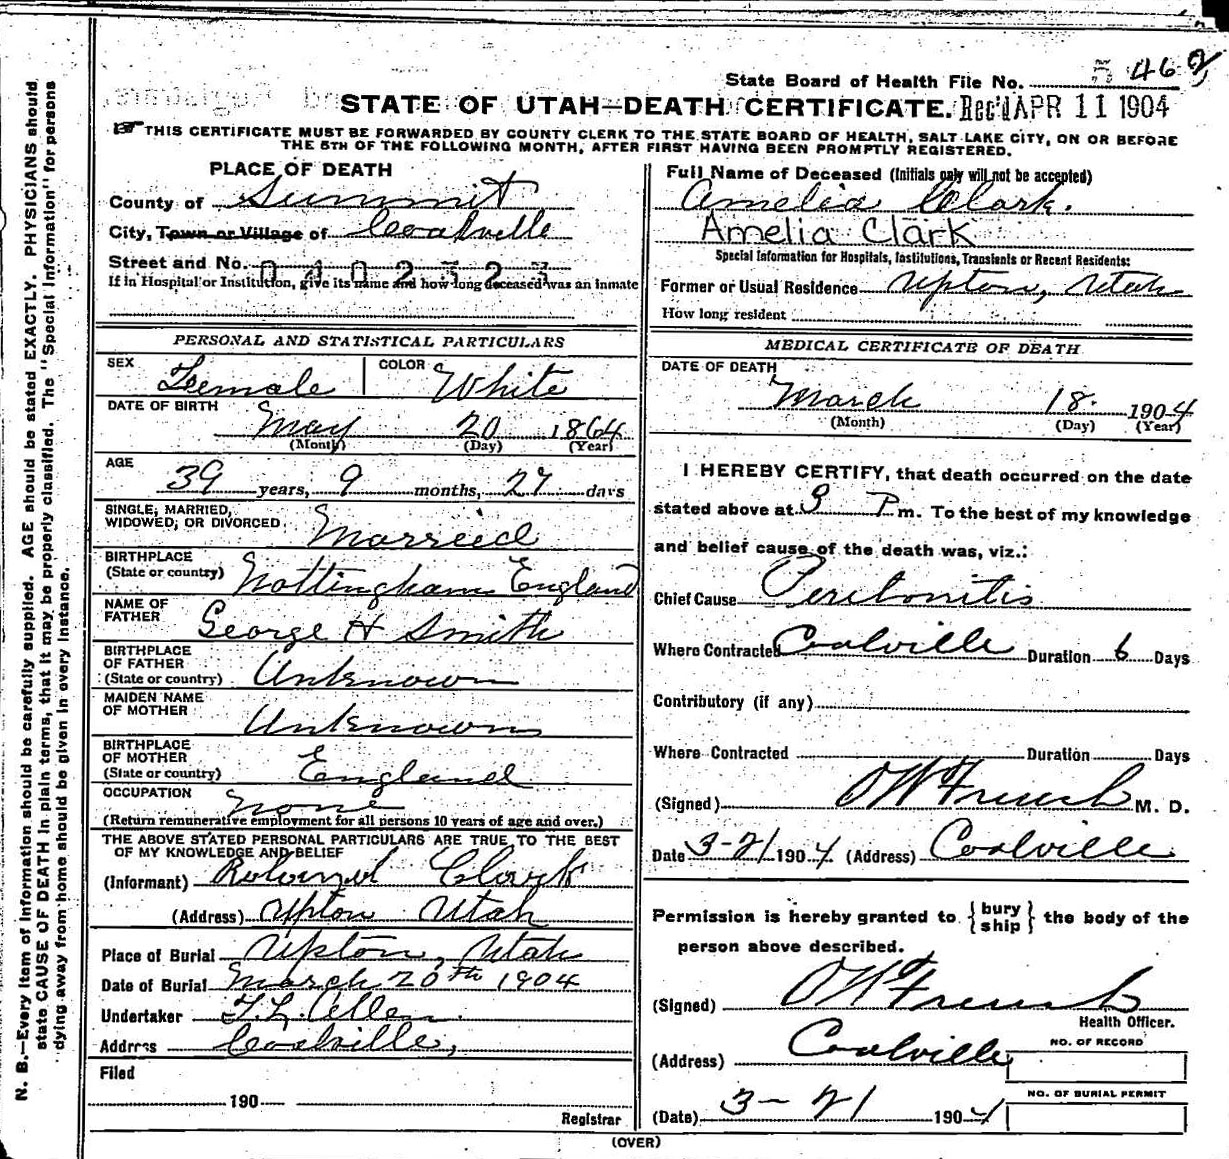 State Board of Health File No. 5 46 2
STATE OF UTAH—DEATH CERTIFICATE. Rec'd APR 11 1904
THIS CERTIFICATE MUST BE FORWARDED BY COUNTY CLERK TO THE STATE BOARD OF HEALTH, SALT LAKE CITY, ON OR BEFORE
THE 5TH OF THE FOLLOWING MONTH, AFTER FIRST HAVING BEEN PROMPTLY REGISTERED.
PLACE OF DEATH
County of Summit
City, Town or Village of Coalville
Street and No. 0402523
If in Hospital or Institution, give its name and how long deceased was an inmate
PERSONAL AND STATISTICAL PARTICULARS
SEX Female COLOR White
DATE OF BIRTH
May 20 1864
(Month) (Day) (Year)
AGE
39 years, 9 months, 27 days
SINGLE, MARRIED,
WIDOWED, OR DIVORCED Marreied
BIRTHPLACE
(State or country) Nottingham England
NAME OF
FATHER George H Smith
BIRTHPLACE
OF FATHER
(State or country) Unknown
MAIDEN NAME
OF MOTHER Unknown
BIRTHPLACE
OF MOTHER
(State or country) England
OCCUPATION None
(Return remunerative employment for all persons 10 years of age and over.)
THE ABOVE STATED PERSONAL PARTICULARS ARE TRUE TO THE BEST
OF MY KNOWLEDGE AND BELIEF
(Informant) Roland Clark
(Address) Upton Utah
Place of Burial Upton, Utah
Date of Burial March 20th 1904
Undertaker T. L. Allen.
Address Coalville,
Filed
190
Registrar
Full Name of Deceased (Initials only will not be accepted)
Amelia Clark.
Amelia Clark
Special Information for Hospitals, Institutions, Transients or Recent Residents:
Former or Usual Residence Upton, Utah
How long resident
MEDICAL CERTIFICATE OF DEATH
DATE OF DEATH
March 18. 1904
(Month) (Day) (Year)
I HEREBY CERTIFY, that death occurred on the date
stated above at 3 P m. To the best of my knowledge
and belief cause of the death was, viz.:
Chief Cause Peritonitis
Where Contracted Coalville Duration 6 Days
Contributory (if any)
Where Contracted Duration Days
(Signed) O W French M. D.
Date 3-21 1904 (Address) Coalville
Permission is hereby granted to { bury
ship } the body of the
person above described.
(Signed) O W French
Health Officer.
(Address) Coalville
NO. OF RECORD
NO. OF BURIAL PERMIT
(Date) 3-21 1904
(OVER)
N. B.—Every item of information should be carefully supplied. AGE should be stated EXACTLY. PHYSICIANS should
state CAUSE OF DEATH in plain terms, that it may be properly classified. The "Special Information" for persons
dying away from home should be given in every instance.